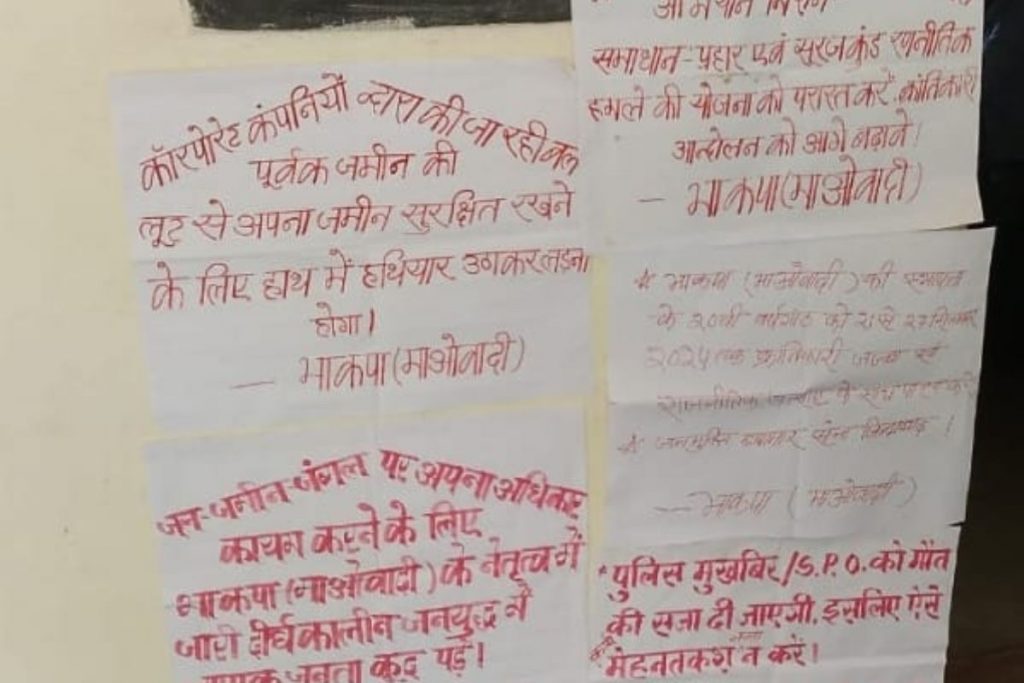 कॉरपोरेट कंपनियों द्वारा की जा रही बल
पूर्वक जमीन की
लूट से अपना जमीन सुरक्षित रखने
के लिए हाथ में हथियार उठाकर लड़ना
होगा।
— भाकपा (माओवादी)
जन-जमीन-जंगल पर अपना अधिकार
कायम करने के लिए
भाकपा (माओवादी) के नेतृत्व में
जारी दीर्घकालीन जनयुद्ध में
जनता कूद पड़ें।
समाधान-प्रहार एवं सुरजकुंड रणनीतिक
हमले की योजना को परास्त करें, क्रांतिकारी
आन्दोलन को आगे बढ़ावें।
— भाकपा (माओवादी)
* भाकपा (माओवादी) की स्थापना
के 20वीं वर्षगांठ को 21 से 27 सितम्बर
क्रांतिकारी
— भाकपा (माओवादी)
* पुलिस मुखबिर/S.P.O. को मौत
की सजा दी जाएगी, इसलिए ऐसे
मेहनतकश न करें।